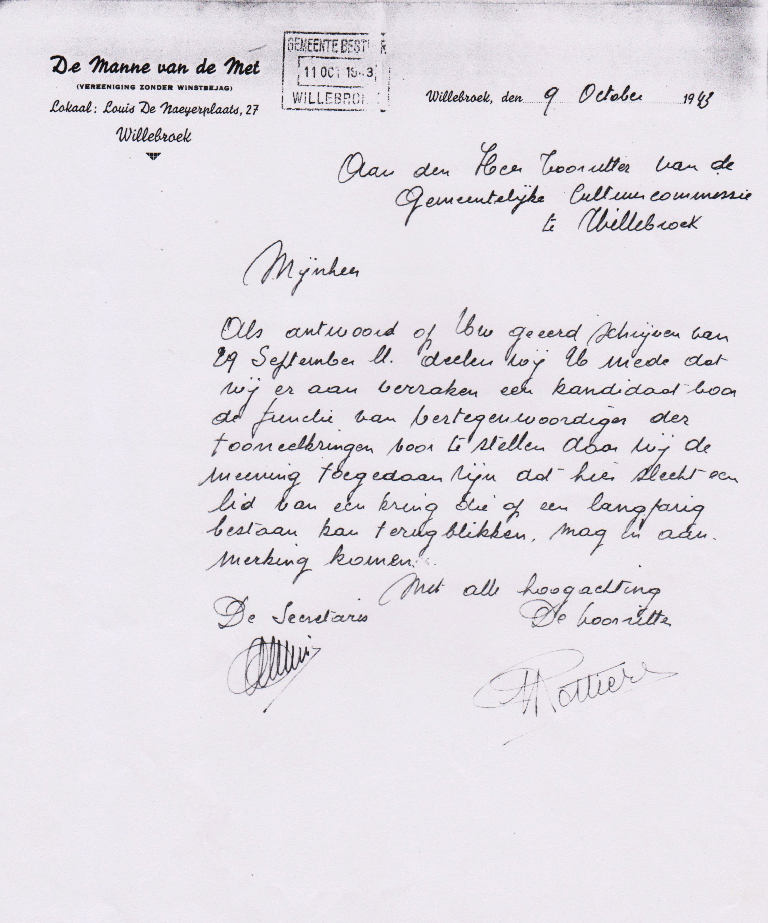 De Manne van de Met
(VEREENIGING ZONDER WINSTBEJAG)
Lokaal: Louis De Naeyerplaats, 27
Willebroek
GEMEENTE BEST R
11 OCT 19 3
WILLEBRO
Willebroek, den 9 October 1943
Aan den Heer Voorzitter van de
Gemeentelijke Cultuurcommissie
te Willebroek
Mijnheer
Als antwoord op Uw geeerd schrijven van
29 September ll. deelen wij U mede dat
wij er aan verzaken een kandidaat voor
de functie van vertegenwoordiger der
tooneelkringen voor te stellen daar wij de
meening toegedaan zijn dat hier slecht een
lid van een kring die op een langjarig
bestaan kan terugblikken, mag in aan-
merking komen.
Met alle hoogachting
De Secretaris De Voorzitter